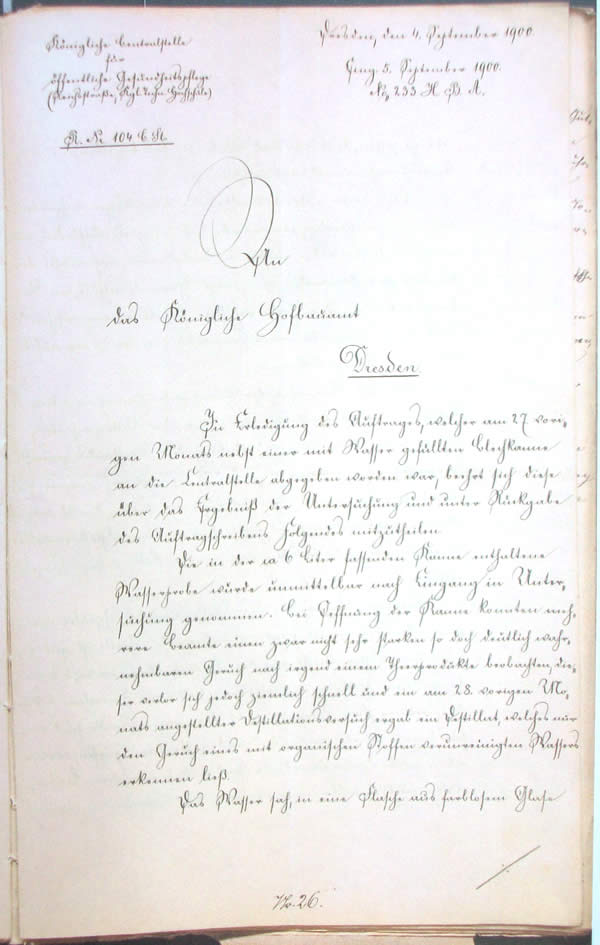 Königliche Centralstelle
für
öffentliche Gesundheitspflege
(Reichsstraße, Kgl. techn. Hochschule)
R. Nr 104 C St.
Dresden, den 4. September 1900.
Eing. 5. September 1900.
No. 233 H B A.
An
das Königliche Hofbauamt
Dresden.
In Erledigung des Auftrages, welcher am 27. vori-
gen Monats nebst einer mit Wasser gefüllten Blechkanne
an die Centralstelle abgegeben worden war, beehrt sich diese
über das Ergebniß der Untersuchung und unter Rückgabe
des Auftragschreibens Folgendes mitzutheilen.
Die in der ca 6 Liter fassenden Kanne enthaltene
Wasserprobe wurde unmittelbar nach Eingang in Unter-
suchung genommen. Bei Oeffnung der Kanne konnten meh-
rere Beamte einen zwar nicht sehr starken so doch deutlich wahr-
nehmbaren Geruch nach irgend einem Theerprodukte beobachten, die-
ser verlor sich jedoch ziemlich schnell und ein am 28. vorigen Mo-
nats angestellter Destillationsversuch ergab ein Destillat, welches nur
den Geruch eines mit organischen Stoffen verunreinigten Wassers
erkennen ließ.
Das Wasser sah, in eine Flasche aus farblosem Glase
No. 26.